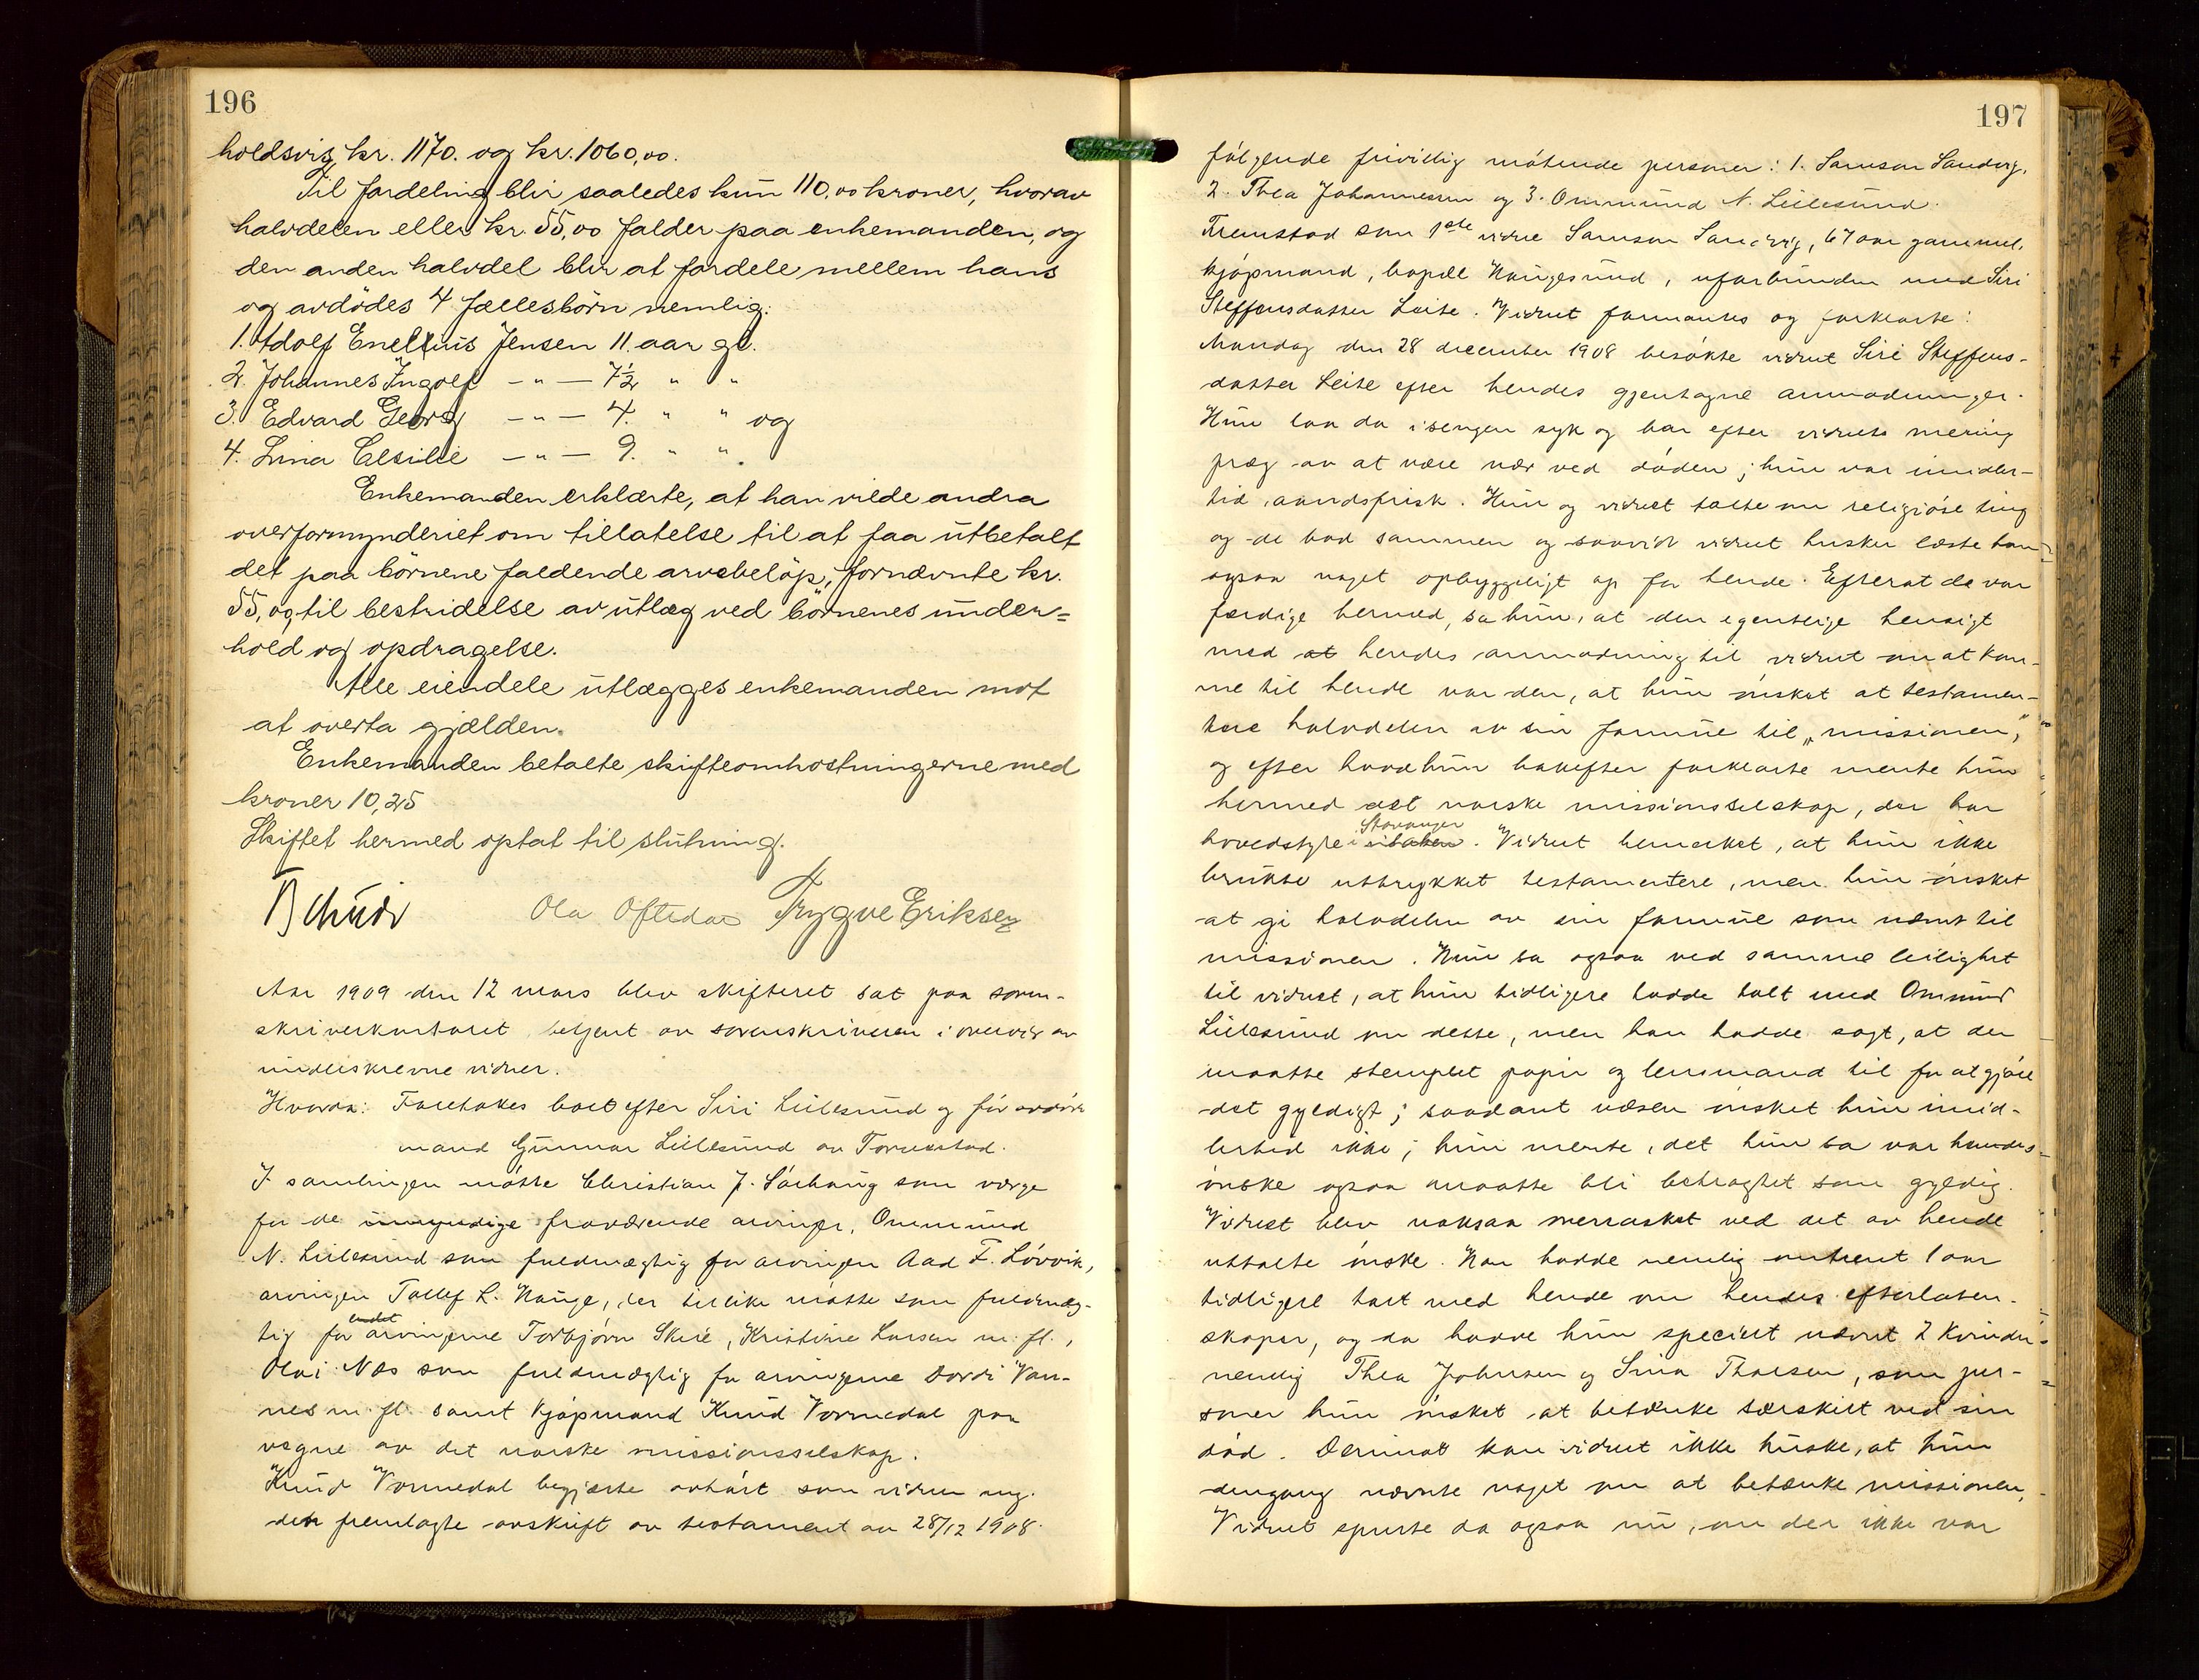 196
holdsvis kr. 1170. og kr. 1060,00.
Til fordeling blir saaledes kun 110,00 kroner, hvorav
halvdelen eller kr. 55,00 falder paa enkemanden, og
den anden halvdel blir at fordele mellem hans
og avdödes 4 fællesbörn nemlig:
1. Adolf Enelius Jensen 11 aar gl.
2. Johannes Ingolf -"- 7½ " "
3. Edvard Georg -"- 4. " " og
4. Lina Cesilie -"- 9. " ".
Enkemanden erklærte, at han vilde andra
overformynderiet om tillatelse til at faa utbetalt
det paa börnene faldende arvebelöp, fornævnte kr.
55,00, til bestridelse av utlæg ved börnenes under=
hold og opdragelse.
Alle eiendele utlægges enkemanden mot
at overta gjælden.
Enkemanden betalte skifteomkostningerne med
kroner 10,25
Skiftet hermed optat til slutning.
Ola Oftedal Trygve Eriksen
Aar 1909 den 12 mars blev skifteret sat paa soren-
skriverkontoret betjent av sorenskriveren i overvær av
underskrevne vidner.
Hvorda: Foretokes boet efter Siri Lillesund og før avdøde
mand Gunnar Lillesund av Torvestad.
I samlingen møtte Christian J. Sørhaug som værge
for de umyndige fraværende arvinger, Ommund
N. Lillesund som fuldmægtig for arvingen Aad F. Løvvik,
arvingen Tollef L. Hauge, der tillike møtte som fuldmæg-
tig for endel arvingerne Torbjørn Skeie, Kristine Larsen m. fl.,
Olai Næs som fuldmægtig for arvingerne Dordi Van-
nes m. fl. samt kjøpmand Knud Vormedal paa
vegne av det norske missionsselskap.
Knud Vormedal begjærte avhørt som vidner ang.
den fremlagte avskrift av testament av 28/12 1908
197
følgende frivillig møtende personer: 1. Samson Sandvig,
2. Thea Johannessen og 3. Ommund N. Lillesund.
Fremstod som 1ste vidne Samson Sandvig, 67 aar gammel,
kjøpmand, bopæl Haugesund, uforbunden med Siri
Steffensdatter Leite. Vidnet formantes og forklarte:
Mandag den 28 december 1908 besøkte vidnet Siri Steffens-
datter Leite efter hendes gjentagne anmodninger.
Hun laa da i sengen syk og bar efter vidnets mening
præg av at være nær ved døden; hun var imidler-
tid aandsfrisk. Hun og vidnet talte om religiøse ting
og de bad sammen og saavidt vidnet husker læste han
ogsaa noget opbyggeligt op for hende. Efterat de var
færdige hermed, sa hun, at den egentlige hensigt
med at hendes anmodning til vidnet om at kom-
me til hende var den, at hun ønsket at testamen-
tere halvdelen av sin formue til „missionen",
og efter hvad hun bakefter forklarte mente hun
hermed det norske missionsselskap, der har
hovedstyre i Stavanger. Vidnet bemerket, at hun ikke
brukte uttrykket testamentere, men hun ønsket
at gi halvdelen av sin formue som nævnt til
missionen. Hun sa ogsaa ved samme leilighet
til vidnet, at hun tidligere hadde talt med Ommund
Lillesund om dette, men han hadde sagt, at der
maatte stemplet papir og lensmand til for at gjøre
det gyldigt; saadant væsen ønsket hun imid-
lertid ikke; hun mente, det hun sa var hendes
ønske ogsaa maatte bli betragtet som gyldig.
Vidnet blev noksaa overrasket ved det av hende
uttalte ønske. Han hadde nemlig omtrent 1 aar
tidligere talt med hende om hendes efterlaten-
skaper, og da hadde hun specielt nævnt 2 kvinder
nemlig Thea Johnsen og Sina Thorsen, som per-
soner hun ønsket at betænke særskilt ved sin
død. Derimot kan vidnet ikke huske, at hun
dengang nævnte noget om at betænke missionen.
Vidnet spurte da ogsaa nu, om der ikke var